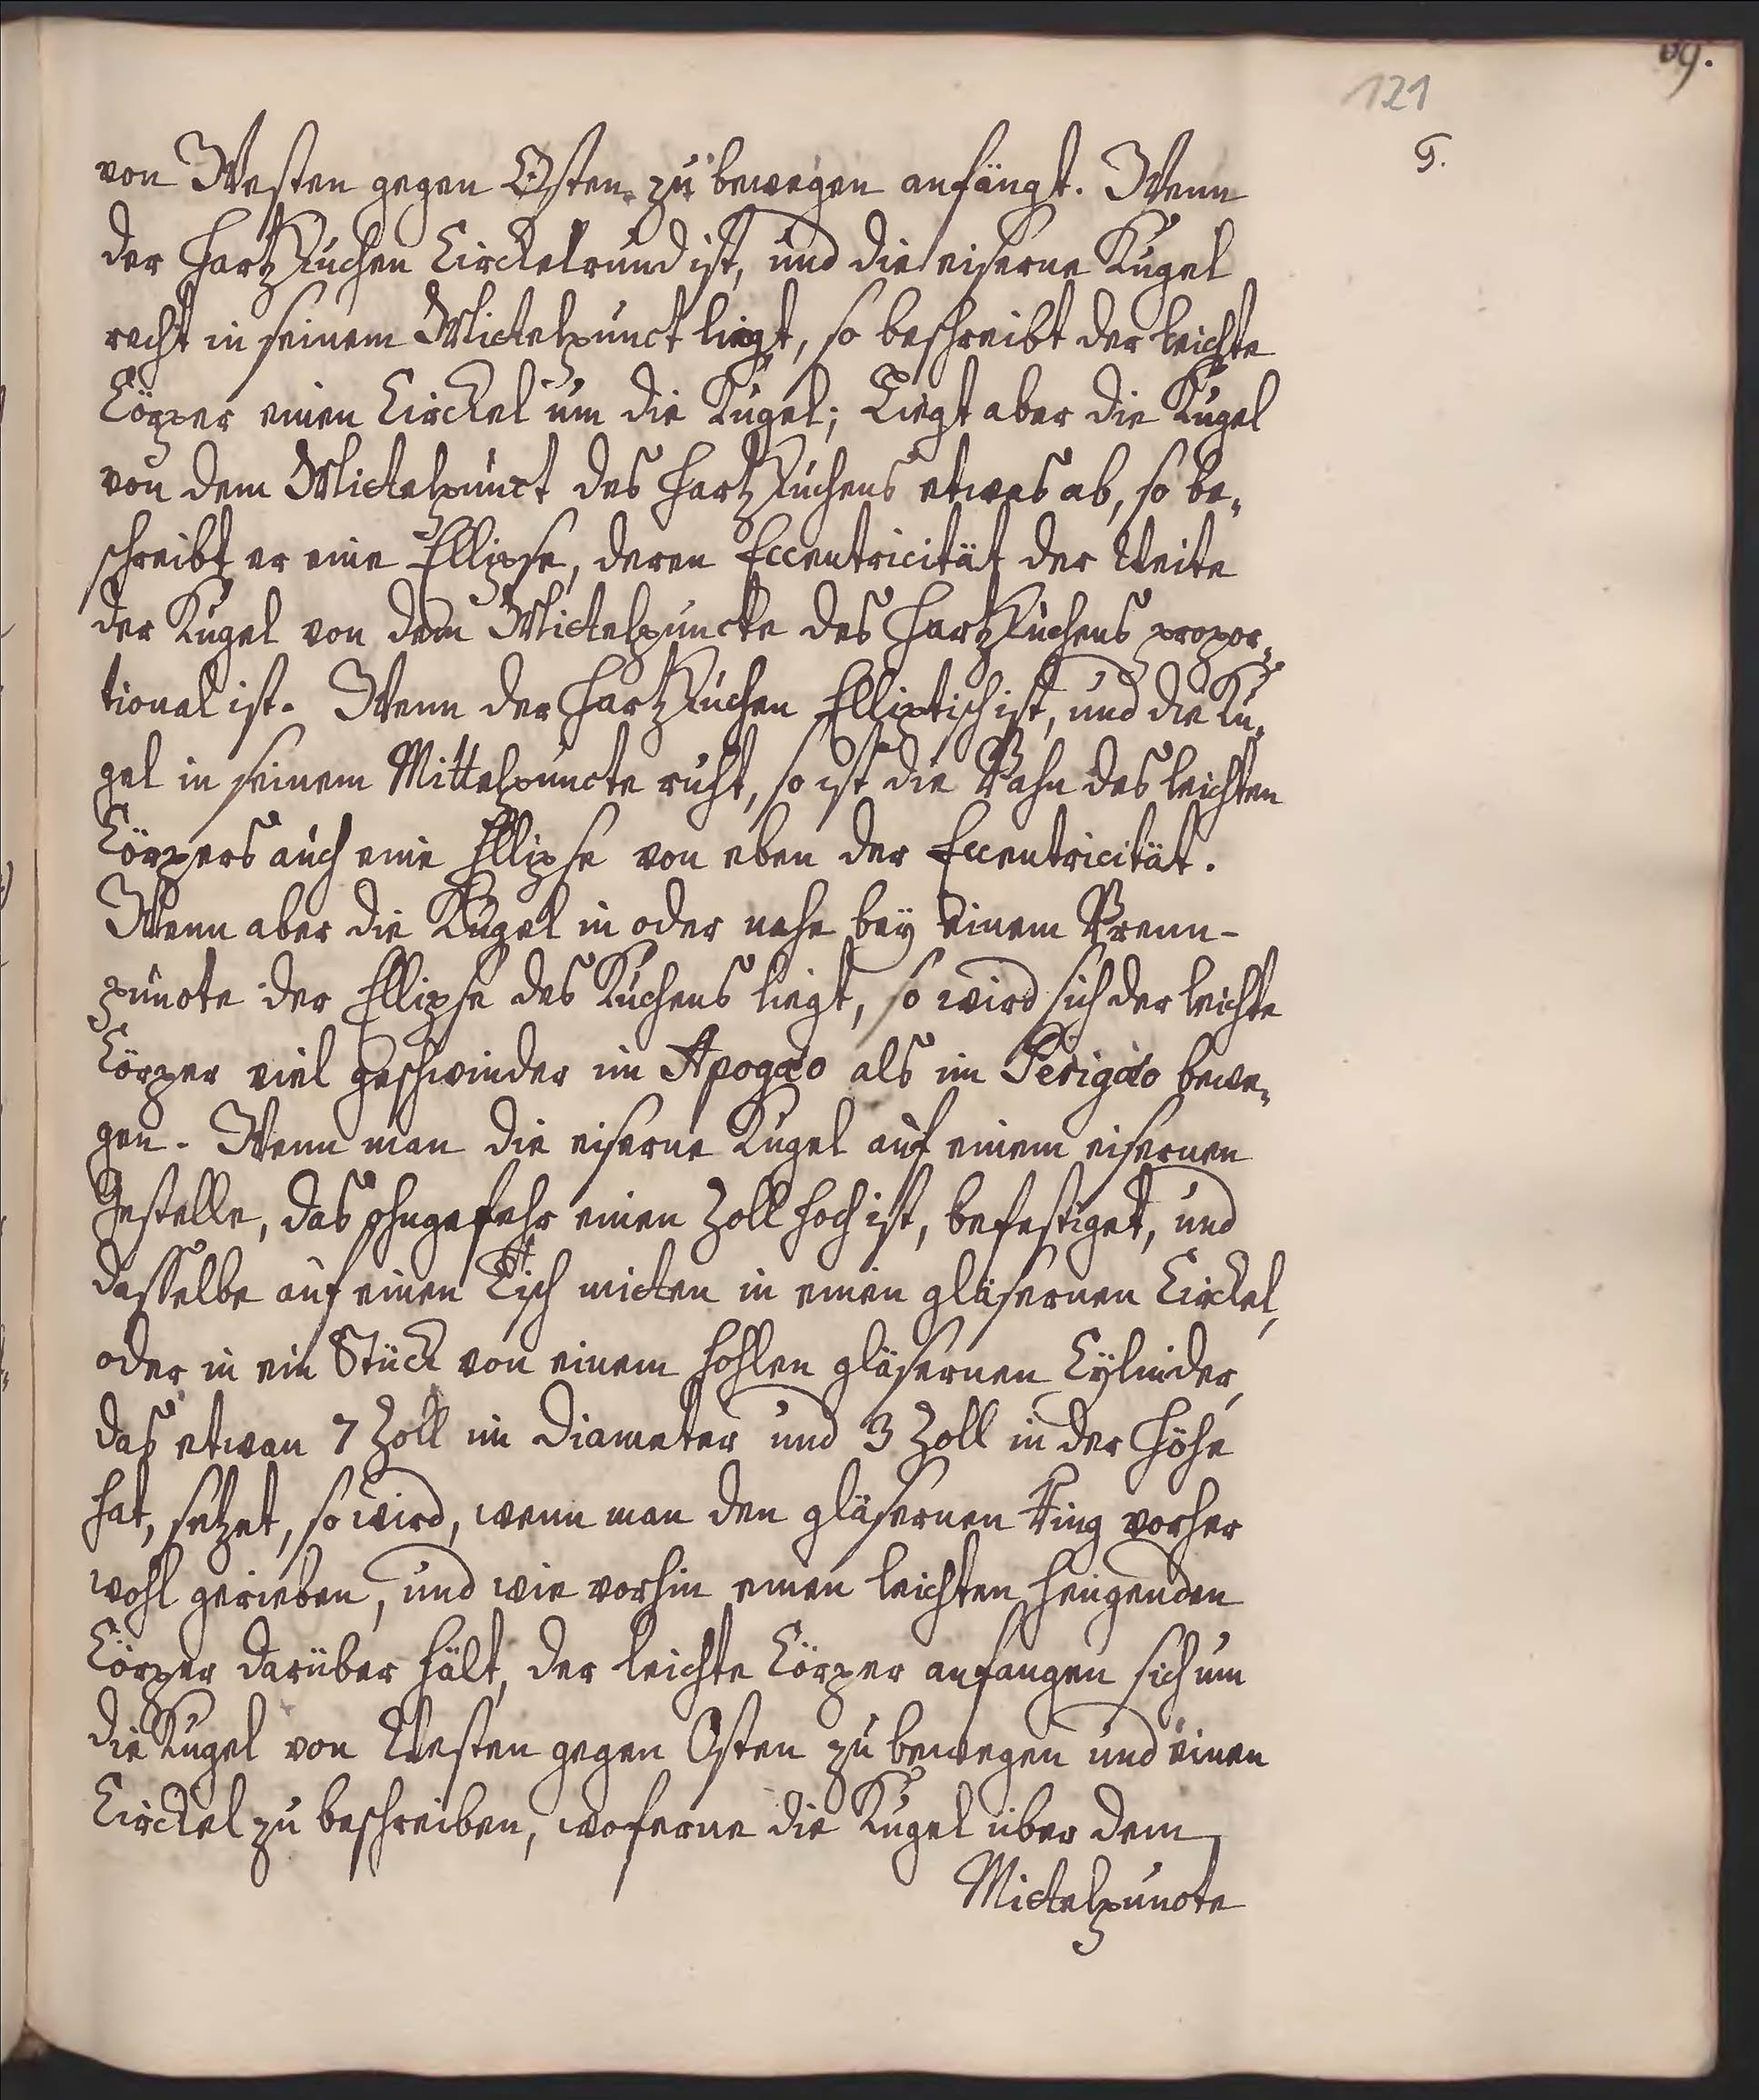 121
G.
von Westen gegen Osten zu bewegen anfängt. Wenn
der Hartzkuchen Circkelrund ist, und die eiserne Kugel
recht in seinem Mittelpunct liegt, so beschreibt der leichte
Cörper einen Circkel um die Kugel; Liegt aber die Kugel
von dem Mittelpunct des Hartzkuchens etwas ab, so be„
schreibt er eine Ellipse, deren Eccentricität der Weite
der Kugel von dem Mittelpuncte des Hartzkuchens propor„
tional ist. Wenn der Hartzkuchen Elliptisch ist, und die Ku„
gel in seinem Mittelpuncte ruht, so ist die Bahn des leichten
Cörpers auch eine Ellipse von eben der Eccentricität.
Wenn aber die Kugel in oder nahe bey einem Brenn-
puncte der Ellipse des Kuchens liegt, so wird sich der leichte
Cörper viel geschwinder im Apogæo als im Perigæo bewe„
gen. Wenn man die eiserne Kugel auf einem eisernen
Gestelle, das ohngefehr einen Zoll hoch ist, befestiget, und
dasselbe auf einen Tisch mitten in einen gläsernen Circkel,
oder in ein Stück von einem hohlen gläsernen Cylinder,
das etwan 7 Zoll im Diameter und 3 Zoll in der Höhe
hat, setzet, so wird, wenn man den gläsernen Ring vorher
wohl gerieben, und wie vorhin einen leichten hengenden
Cörper darüber hält, der leichte Cörper anfangen sich um
die Kugel von Westen gegen Osten zu bewegen und einen
Circkel zu beschreiben, woferne die Kugel über dem
Mittelpuncte